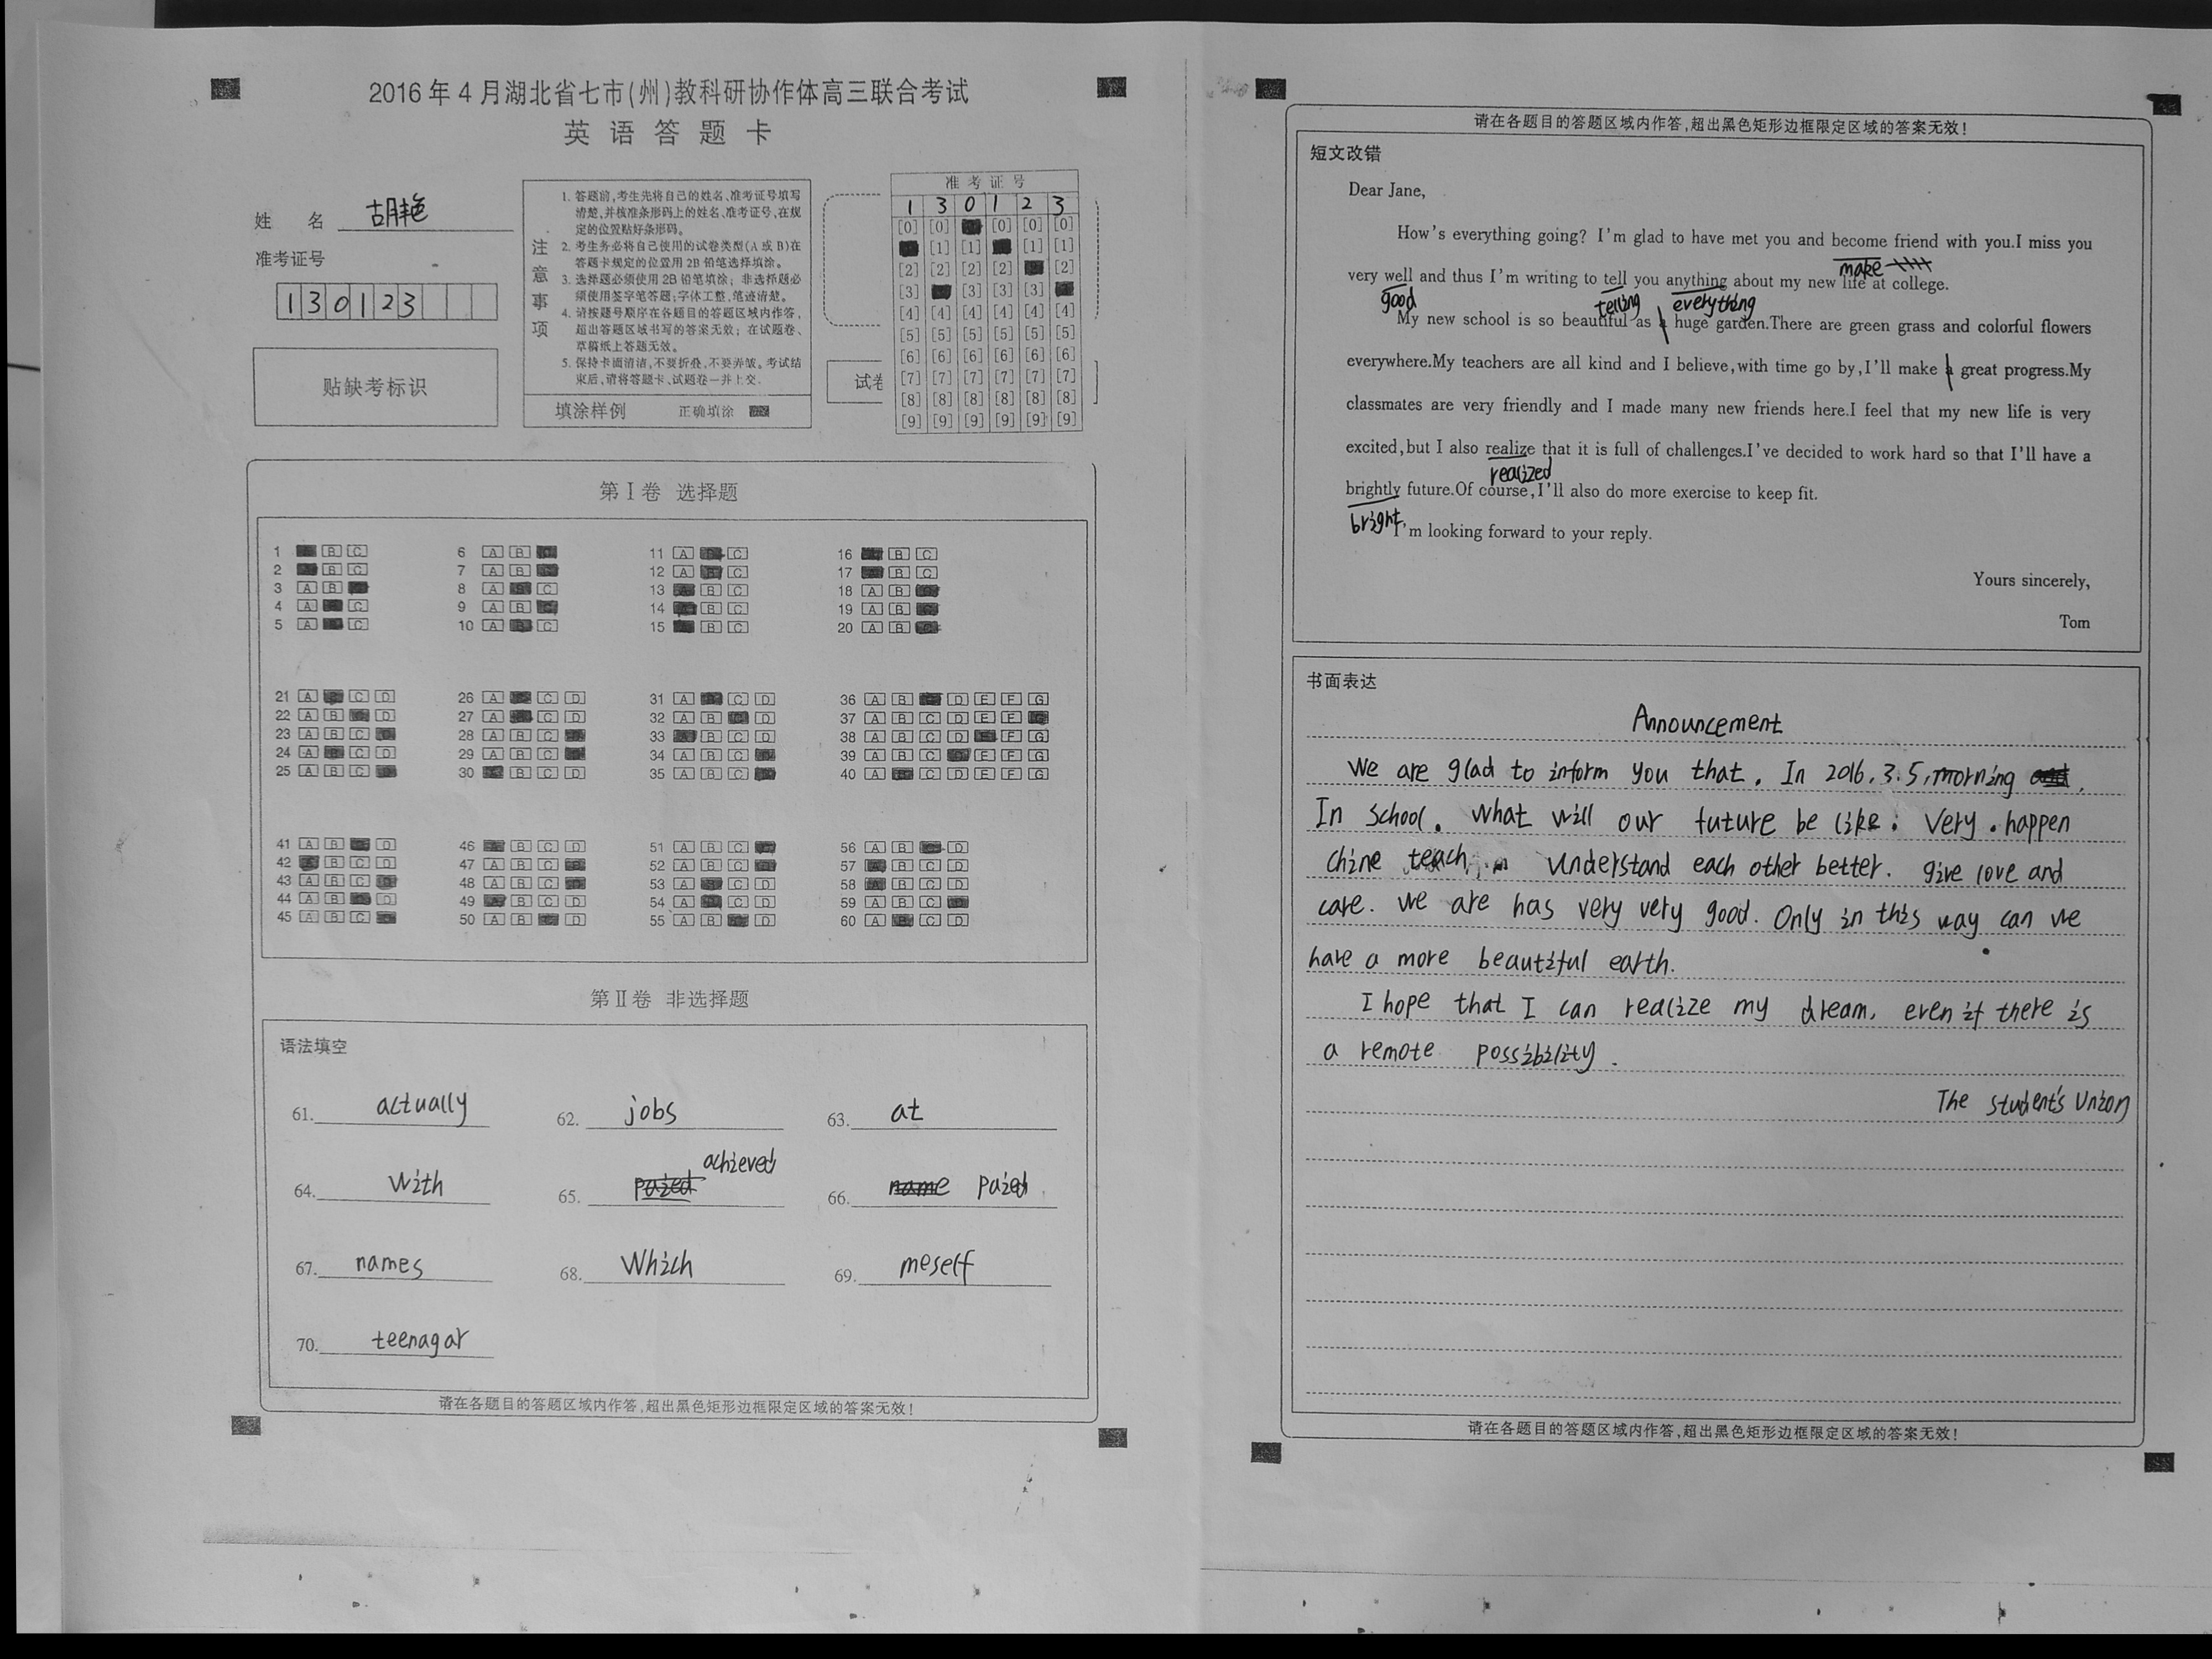 2016年4月湖北省七市(州)教科研协作体高三联合考试
英语答题卡
姓 名 胡艳
准考证号
130123
贴缺考标识
注意事项
1. 答题前,考生先将自己的姓名、准考证号填写
清楚,并核准条形码上的姓名、准考证号,在规
定的位置贴好条形码。
2. 考生务必将自己使用的试卷类型(A或B)在
答题卡规定的位置用2B铅笔选择填涂。
3. 选择题必须使用2B铅笔填涂;非选择题必
须使用签字笔答题;字体工整,笔迹清楚。
4. 请按题号顺序在各题目的答题区域内作答,
超出答题区域书写的答案无效;在试题卷、
草稿纸上答题无效。
5. 保持卡面清洁,不要折叠,不要弄皱。考试结
束后,请将答题卡、试题卷一并上交.
填涂样例 正确填涂
试卷
准考证号
1 3 0 1 2 3
[0] [0] [0] [0] [0]
[1] [1] [1] [1]
[2] [2] [2] [2] [2]
[3] [3] [3] [3]
[4] [4] [4] [4] [4] [4]
[5] [5] [5] [5] [5] [5]
[6] [6] [6] [6] [6] [6]
[7] [7] [7] [7] [7] [7]
[8] [8] [8] [8] [8] [8]
[9] [9] [9] [9] [9] [9]
第Ⅰ卷 选择题
1 B C 6 A B 11 A C 16 B C
2 B C 7 A B 12 A C 17 B C
3 A B 8 A C 13 B C 18 A B
4 A C 9 A B 14 B C 19 A B
5 A C 10 A C 15 B C 20 A B
21 A C D 26 A C D 31 A C D 36 A B D E F G
22 A B D 27 A C D 32 A B D 37 A B C D E F
23 A B C 28 A B C 33 B C D 38 A B C D F G
24 A C D 29 A B C 34 A B C 39 A B C E F G
25 A B C 30 B C D 35 A B C 40 A C D E F G
41 A B D 46 B C D 51 A B C 56 A B D
42 B C D 47 A B C 52 A B C 57 B C D
43 A B C 48 A B C 53 A C D 58 B C D
44 A B D 49 B C D 54 A C D 59 A B C
45 A B C 50 A B D 55 A B D 60 A C D
第Ⅱ卷 非选择题
语法填空
61. actually 62. jobs 63. at
64. with 65. achieved 66. paied
67. names 68. Which 69. meself
70. teenagar
请在各题目的答题区域内作答,超出黑色矩形边框限定区域的答案无效!
请在各题目的答题区域内作答,超出黑色矩形边框限定区域的答案无效!
短文改错
Dear Jane,
How's everything going? I'm glad to have met you and become friend with you.I miss you
make
very well and thus I'm writing to tell you anything about my new life at college.
good telling everything
My new school is so beautiful as a huge garden.There are green grass and colorful flowers
everywhere.My teachers are all kind and I believe,with time go by,I'll make a great progress.My
classmates are very friendly and I made many new friends here.I feel that my new life is very
excited,but I also realize that it is full of challenges.I've decided to work hard so that I'll have a
realized
brightly future.Of course,I'll also do more exercise to keep fit.
bright
I'm looking forward to your reply.
Yours sincerely,
Tom
书面表达
Announcement
We are glad to inform you that. In 2016.3.5,morning
In school. What will our future be like: Very. happen
chine teach. understand each other better. give love and
care. We are has very very good. Only in this way can we
have a more beautiful earth.
I hope that I can realize my dream, even if there is
a remote possibility.
The student's Union
请在各题目的答题区域内作答,超出黑色矩形边框限定区域的答案无效!